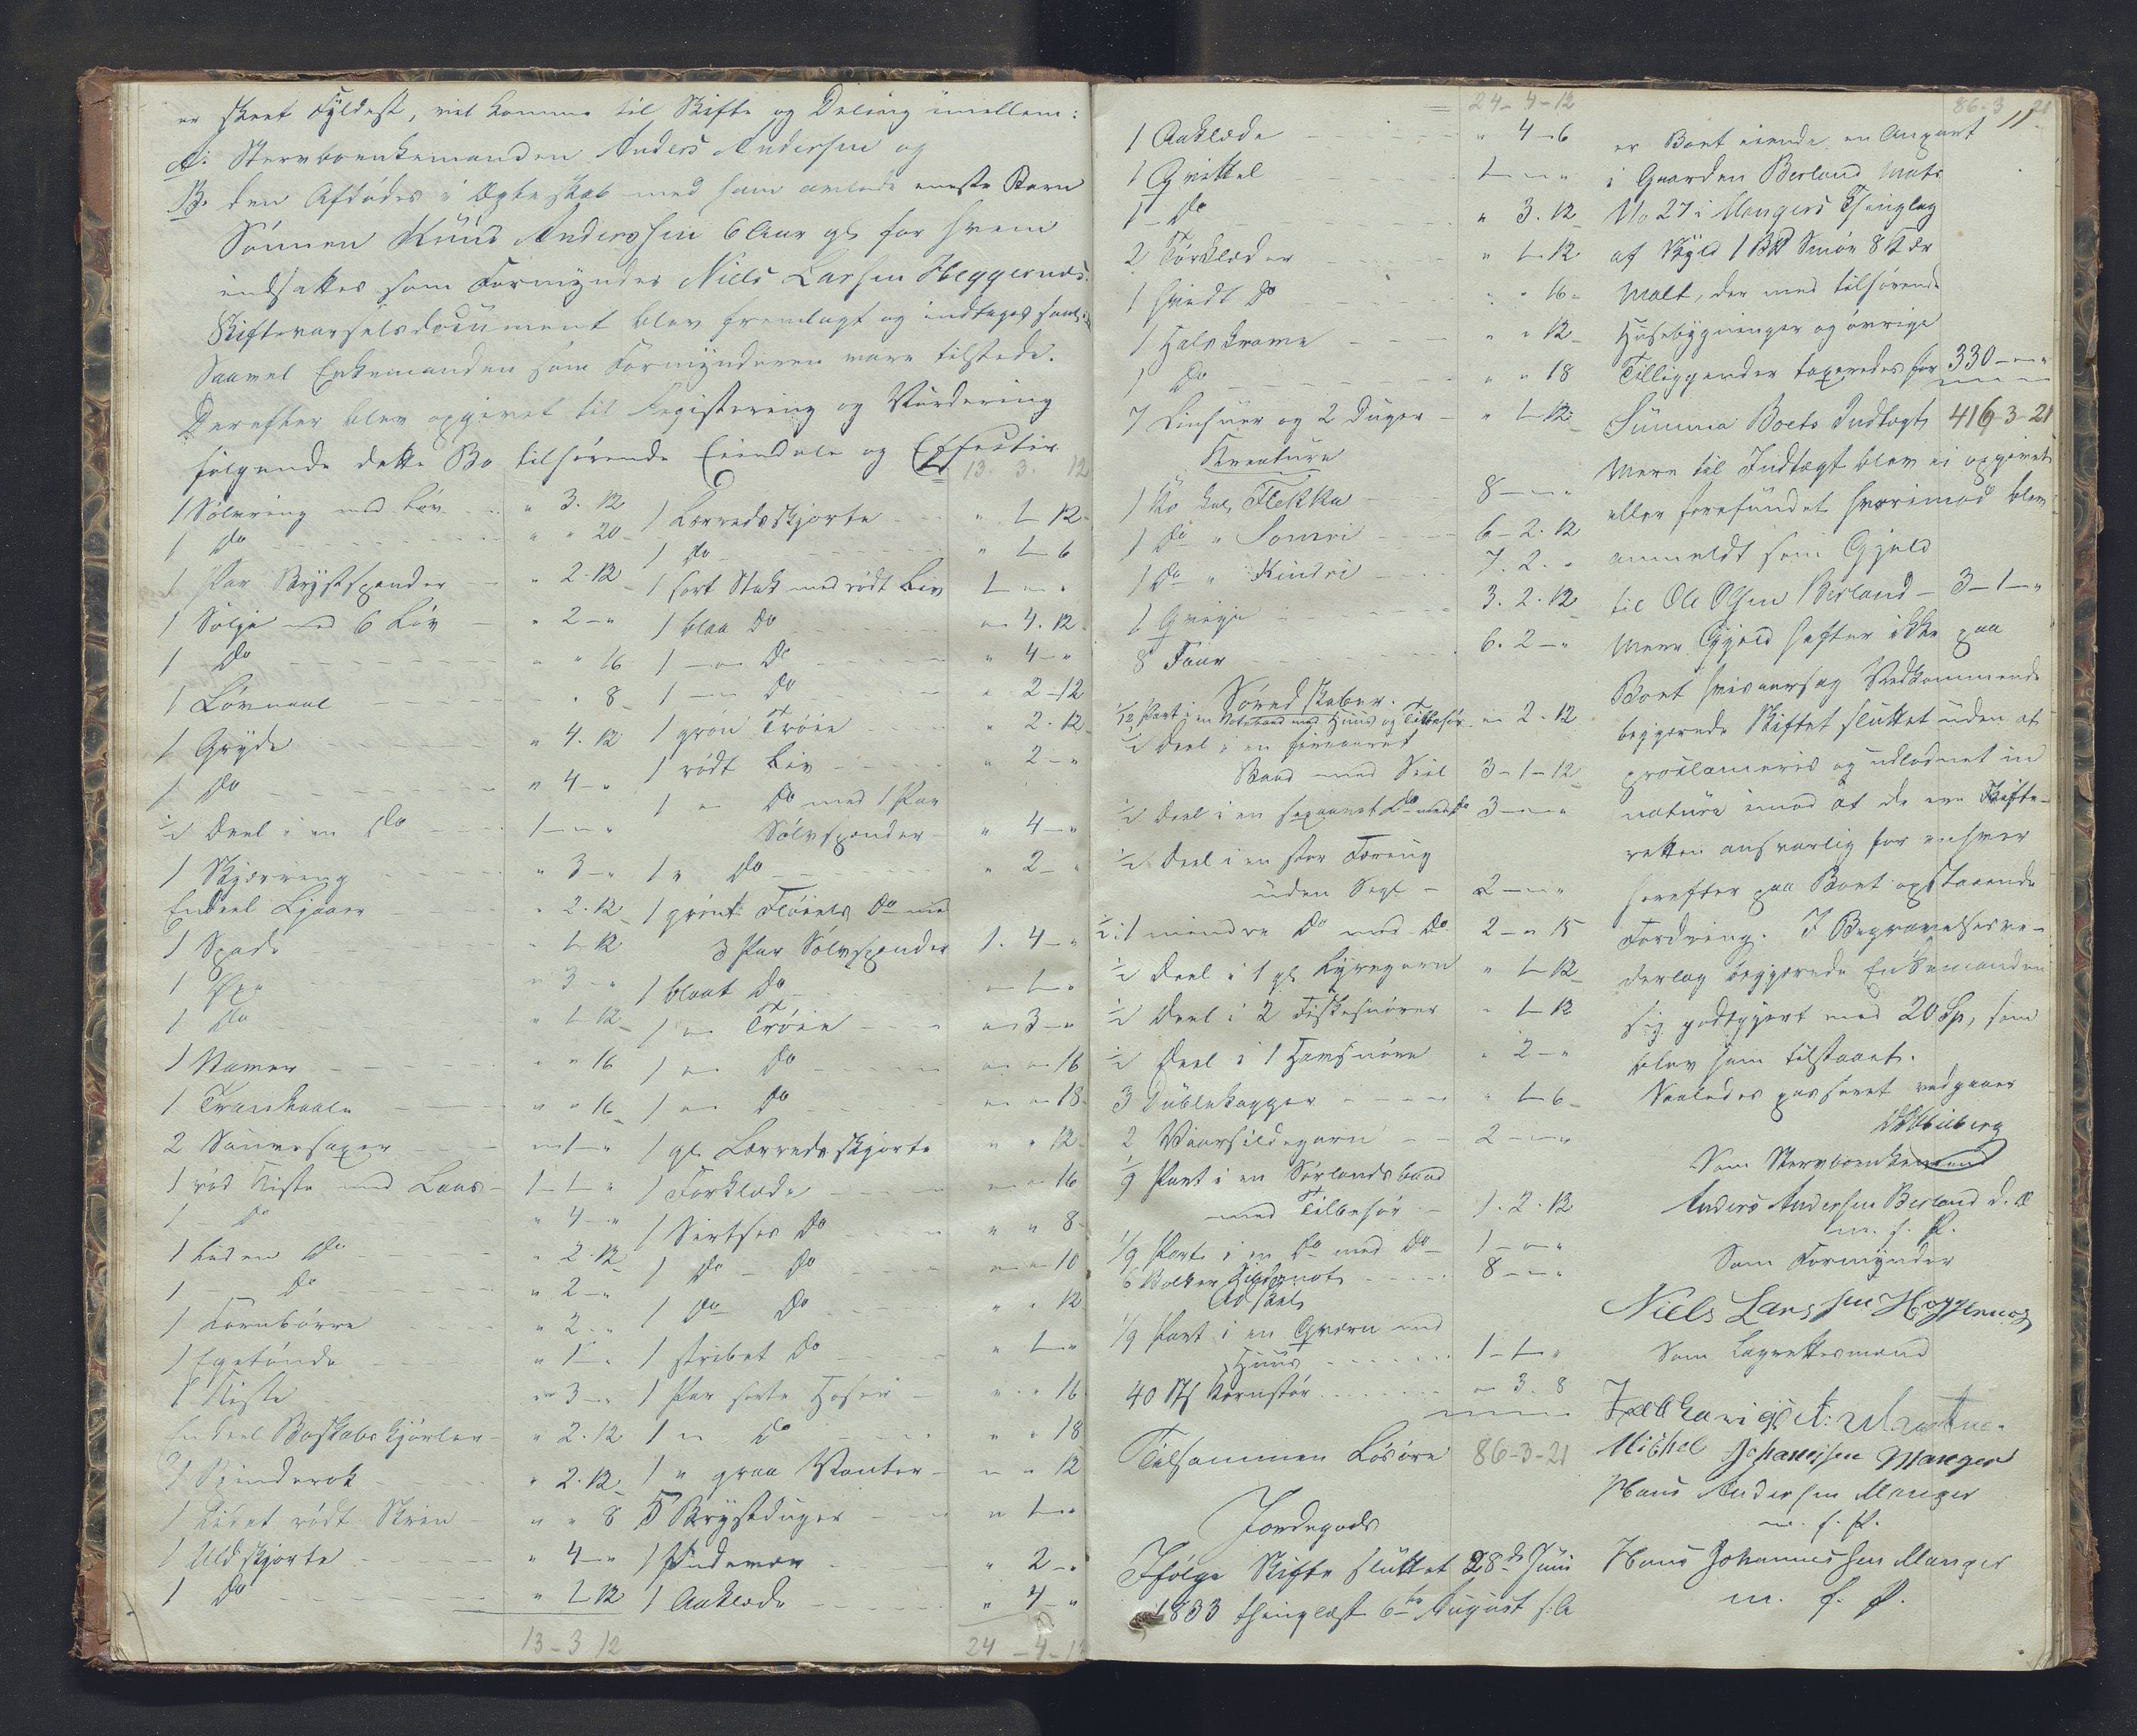 er skeet Fyldest, vil komme til Skifte og Deling imellem:
A: Stervboenkemanden Anders Andersen og
B. den Afdødes i Ægteskab med ham avlede eneste Barn
Sønnen Knud Andersen 6 Aar gl for hvem
indsattes som Formynder Niels Larsen Heggernæs.
Skiftevarselsdocument blev fremlagt og indtages
Saavel Enkemanden som Formynderen vare tilstede.
Derefter blev opgivet til Registering og Vurdering
følgende dette Bo tilhørende Eiendele og Effecter
1 Sølvring med Løv " 3. 12
1 Do " " 20
1 Par Brystspender " 2. 12
1 Sølje med 6 Løv " 2 - "
1 Do " " 16
1 Løvnaal " " 8
1 Gryde " 4. 12
1 Do " 4 - "
1/2 Deel i en Do 1 - " - "
1 Skjæring " 3 - "
Endeel Ljaaer " 2. 12
1 Spade " 1. 12
1 Øxe " 3 - "
1 Do " 1. 12
1 Naver " " 16
1 Trankaale " " 16
2 Sauesaxer " 1 - "
1 rød Kiste med Laas 1 - 1 - "
1 - Do " 4 - "
1 liden Do " 2. 12
1 - Do " 2 - "
1 Kornbørre " 2 - "
1 Egetønde " 1 - "
1 Kiste " 3 - "
En deel Boskabskjørler " 2. 12
1 Spinderok " 2. 12
1 Lidet rødt Skrin " " 8
1 Uldskjorte " 4 - "
1 Do " 1. 12
13 - 3 12
13. 3. 12
1 Lærredsskjorte " 1. 12
1 Do " 1 - 6
1 sort Stak med rødt Liv 1 - " - "
1 blaa Do " 4. 12
1 - " - Do " 4 - "
1 - " - Do " 2 - 12
1 grøn Trøie " 2. 12
1 rødt Liv " 2 - "
1 " Do med 1 Par
Sølvspender " 4 - "
1 " Do " 2 - "
1 grønt Fløiels Do med
3 Par Sølvspender 1. 4 - "
1 blaat Do " 1 - "
1 " Trøie " 3 - "
1 " Do " " 16
1 " Do " " 18
1 gl Lærredsskjorte " " 12
1 Forklæde " " 16
1 Sirtses Do " " 8
1 Do - Do " " 10
1 Do Do " " 12
1 stribet Do " 1 - "
1 Par sorte Hoser " " 16
1 " Do " " 18
1 " graa Vanter " " 12
5 Brystduger " 1 - "
1 " 2 - "
1 Aaklæde " 4 - "
24 - 4 - 12
24 - 4 - 12
1 Aaklæde " 4 - 6
1 Qvittel 1 - " - "
1 - Do " 3. 12
2 Tørklæder " 1. 12
1 hvidt Do " " 16
1 Halskrave " " 12
1 Do " " 18
7 Linhuer og 2 Duger " 1. 12
Kreature
1 Ko kal. Flekka 8 - " - "
1 Do " Somri 6 - 2. 12
1 Do " Kindri 7. 2. "
1 Qvige 3. 2. 12
8 Faar 6. 2 - "
Søredskaber.
1/12 Part i en Notebaad med Huus og Tilbehør " 2. 12
1/2 Deel i en firaaret
Baad med Seil 3 - 1 - 12
1/2 Deel i en sexaaret Do med Do 3 - " - "
1/2 Deel i en stor Færing
uden Segl 2 - " - "
1/2 i 1 mindre Do med Do 2 - " 15
1/2 Deel i 1 gl Lyregarn " 1. 12
1/2 Deel i 2 Fiskesnører " 1. 12
1/2 Deel i 1 Havsnøre " 2 - "
3 Dublekagger " 1 - 6
2 Vaarsildegarn 2 - " - "
1/9 Part i en Sørlandsbaad
med Tilbehør 1. 2. 12
1/9 Part i en Do med Do 1 - " - "
6 Bolker Sildenot 8 - " - "
Adskel
1/9 Part i en Qværn med
Huus 1 - 1 - "
40 Stk Kornstør " 3. 8
Tilsammen Løsøre 86 - 3 - 21
Jordegods
Ifølge Skifte sluttet 28de Juni
1833 thinglæst 6te August s: A
11
86 - 3 21
er Boet eiende en Anpart
i Gaarden Berland Matr
No 27 i Mangers Thinglag
af Skyld 1 Bpd Smør 8 Mkr
Malt, der med tilhørende
Husebygninger og øvrige
Tilliggender taxeredes for 330 - " - "
Summa Boets Indtægt 416 - 3 - 21
Mere til Indtægt blev ei opgivet
eller forefundet hvorimod blev
anmeldt som Gjeld
til Ole Olsen Berland - 3 - 1 - "
Mere Gjeld hefter ikke paa
Boet hvisaarsag Vedkommende
begjerede Skiftet sluttet uden at
proclameres og udloddet in
natura imod at de ere Skifte-
retten ansvarlig for enhver
herefter paa Boet opstaaende
Fordring. I Begravelsesve-
derlag begjerede Enkemanden
sig godtgjort med 20 Sp, som
blev ham tilstaaet.
Saaledes passeret vedgaaer
Som Stervboenkemand
Anders Andersen Berland d. Æ
m. f. P.
Som Formynder
Niels Larssen Heggernæs
Som Lagrettesmænd
Michel Johannesen Manger
Hans Andersen Manger
m. f. P.
Hans Johannessen Manger
m. f. P.